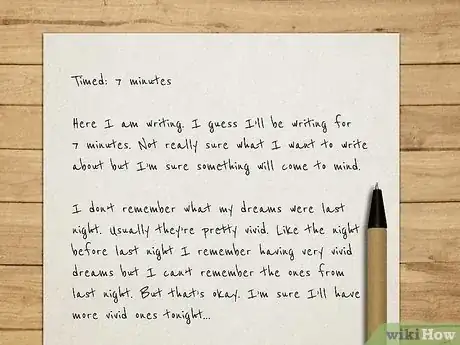 Timed: 7 minutes
Here I am writing. I guess I'll be writing for
7 minutes. Not really sure what I want to write
about but I'm sure something will come to mind.
I don't remember what my dreams were last
night. Usually they're pretty vivid. Like the night
before last night I remember having very vivid
dreams but I can't remember the ones from
last night. But that's okay. I'm sure I'll have
more vivid ones tonight...
wikiHow